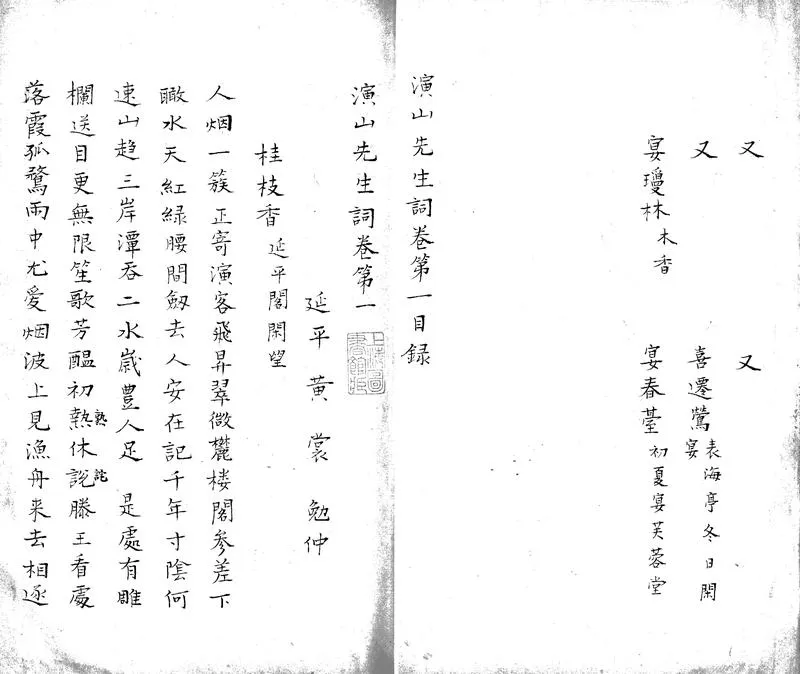 又
又
又
喜遷鶯 表海亭冬日閑宴
宴瓊林 木香
宴春臺 初夏宴芙蓉堂
演山先生詞卷第一目録
演山先生詞卷第一
上海圖書館藏
延平黄裳勉仲
桂枝香 延平閣閑望
人烟一簇正寄演客飛昇翠微麓楼閣參差下
瞰水天紅緑腰間劔去人安在記千年寸陰何
速山趋三岸潭吞二水歲豊人足 是處有雕
欄送目更無限笙歌芳醖初熱熟休説詫滕王看處
落霞孤鶩雨中尤愛烟波上見漁舟来去相逐